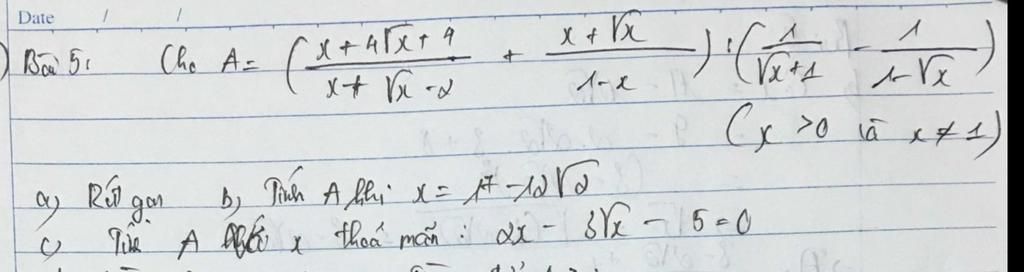 Date / /
Bài 5: Cho A = (x+4√x+4 / x+√x-2 + x+√x / 1-x) : (1 / √x+1 - 1 / 1-√x)
(x >0 và x ≠ 1)
a) Rút gọn b) Tính A khi x = 17 - 12√2
c) Tìm A x thoả mãn : 2x - 3√x - 5 = 0